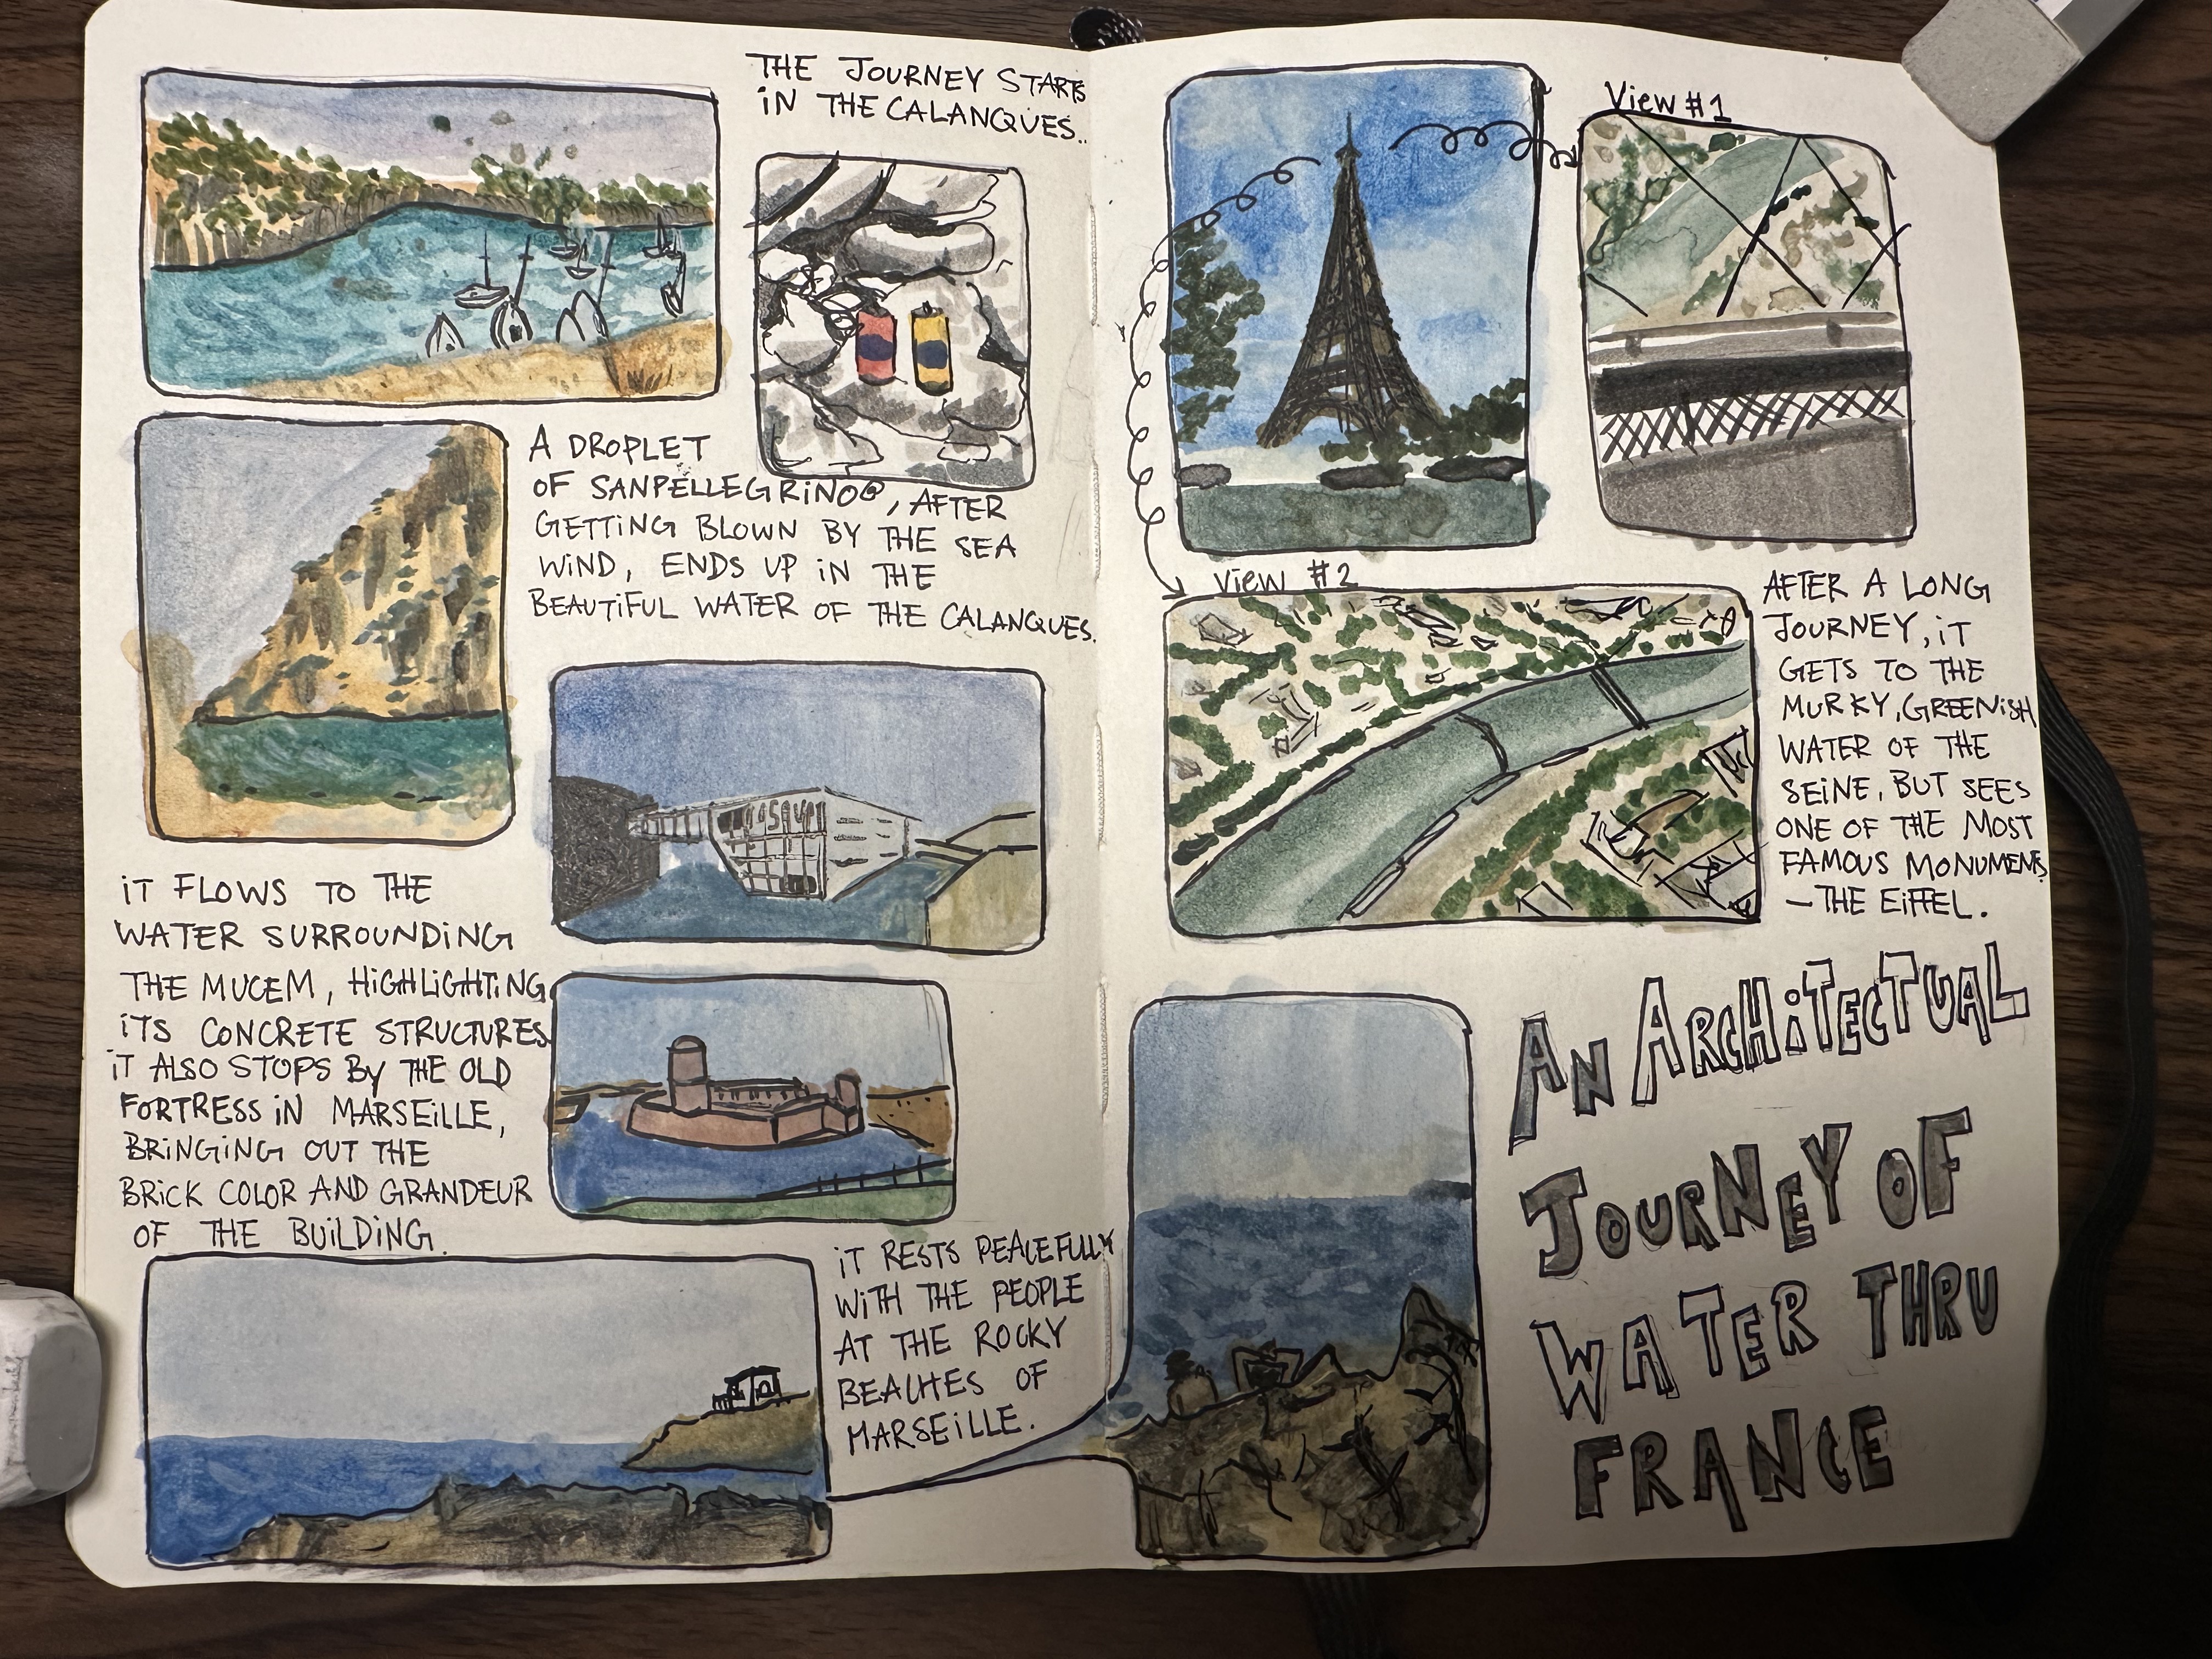 THE JOURNEY STARTS
IN THE CALANQUES..
A DROPLET
OF SANPELLEGRINO®, AFTER
GETTING BLOWN BY THE SEA
WIND, ENDS UP IN THE
BEAUTIFUL WATER OF THE CALANQUES.
IT FLOWS TO THE
WATER SURROUNDING
THE MUCEM, HIGHLIGHTING
ITS CONCRETE STRUCTURES.
IT ALSO STOPS BY THE OLD
FORTRESS IN MARSEILLE,
BRINGING OUT THE
BRICK COLOR AND GRANDEUR
OF THE BUILDING.
IT RESTS PEACEFULLY
WITH THE PEOPLE
AT THE ROCKY
BEACHES OF
MARSEILLE.
View #1
View #2
AFTER A LONG
JOURNEY, IT
GETS TO THE
MURKY, GREENISH
WATER OF THE
SEINE, BUT SEES
ONE OF THE MOST
FAMOUS MONUMENTS
—THE EIFFEL.
AN ARCHITECTUAL
JOURNEY OF
WATER THRU
FRANCE